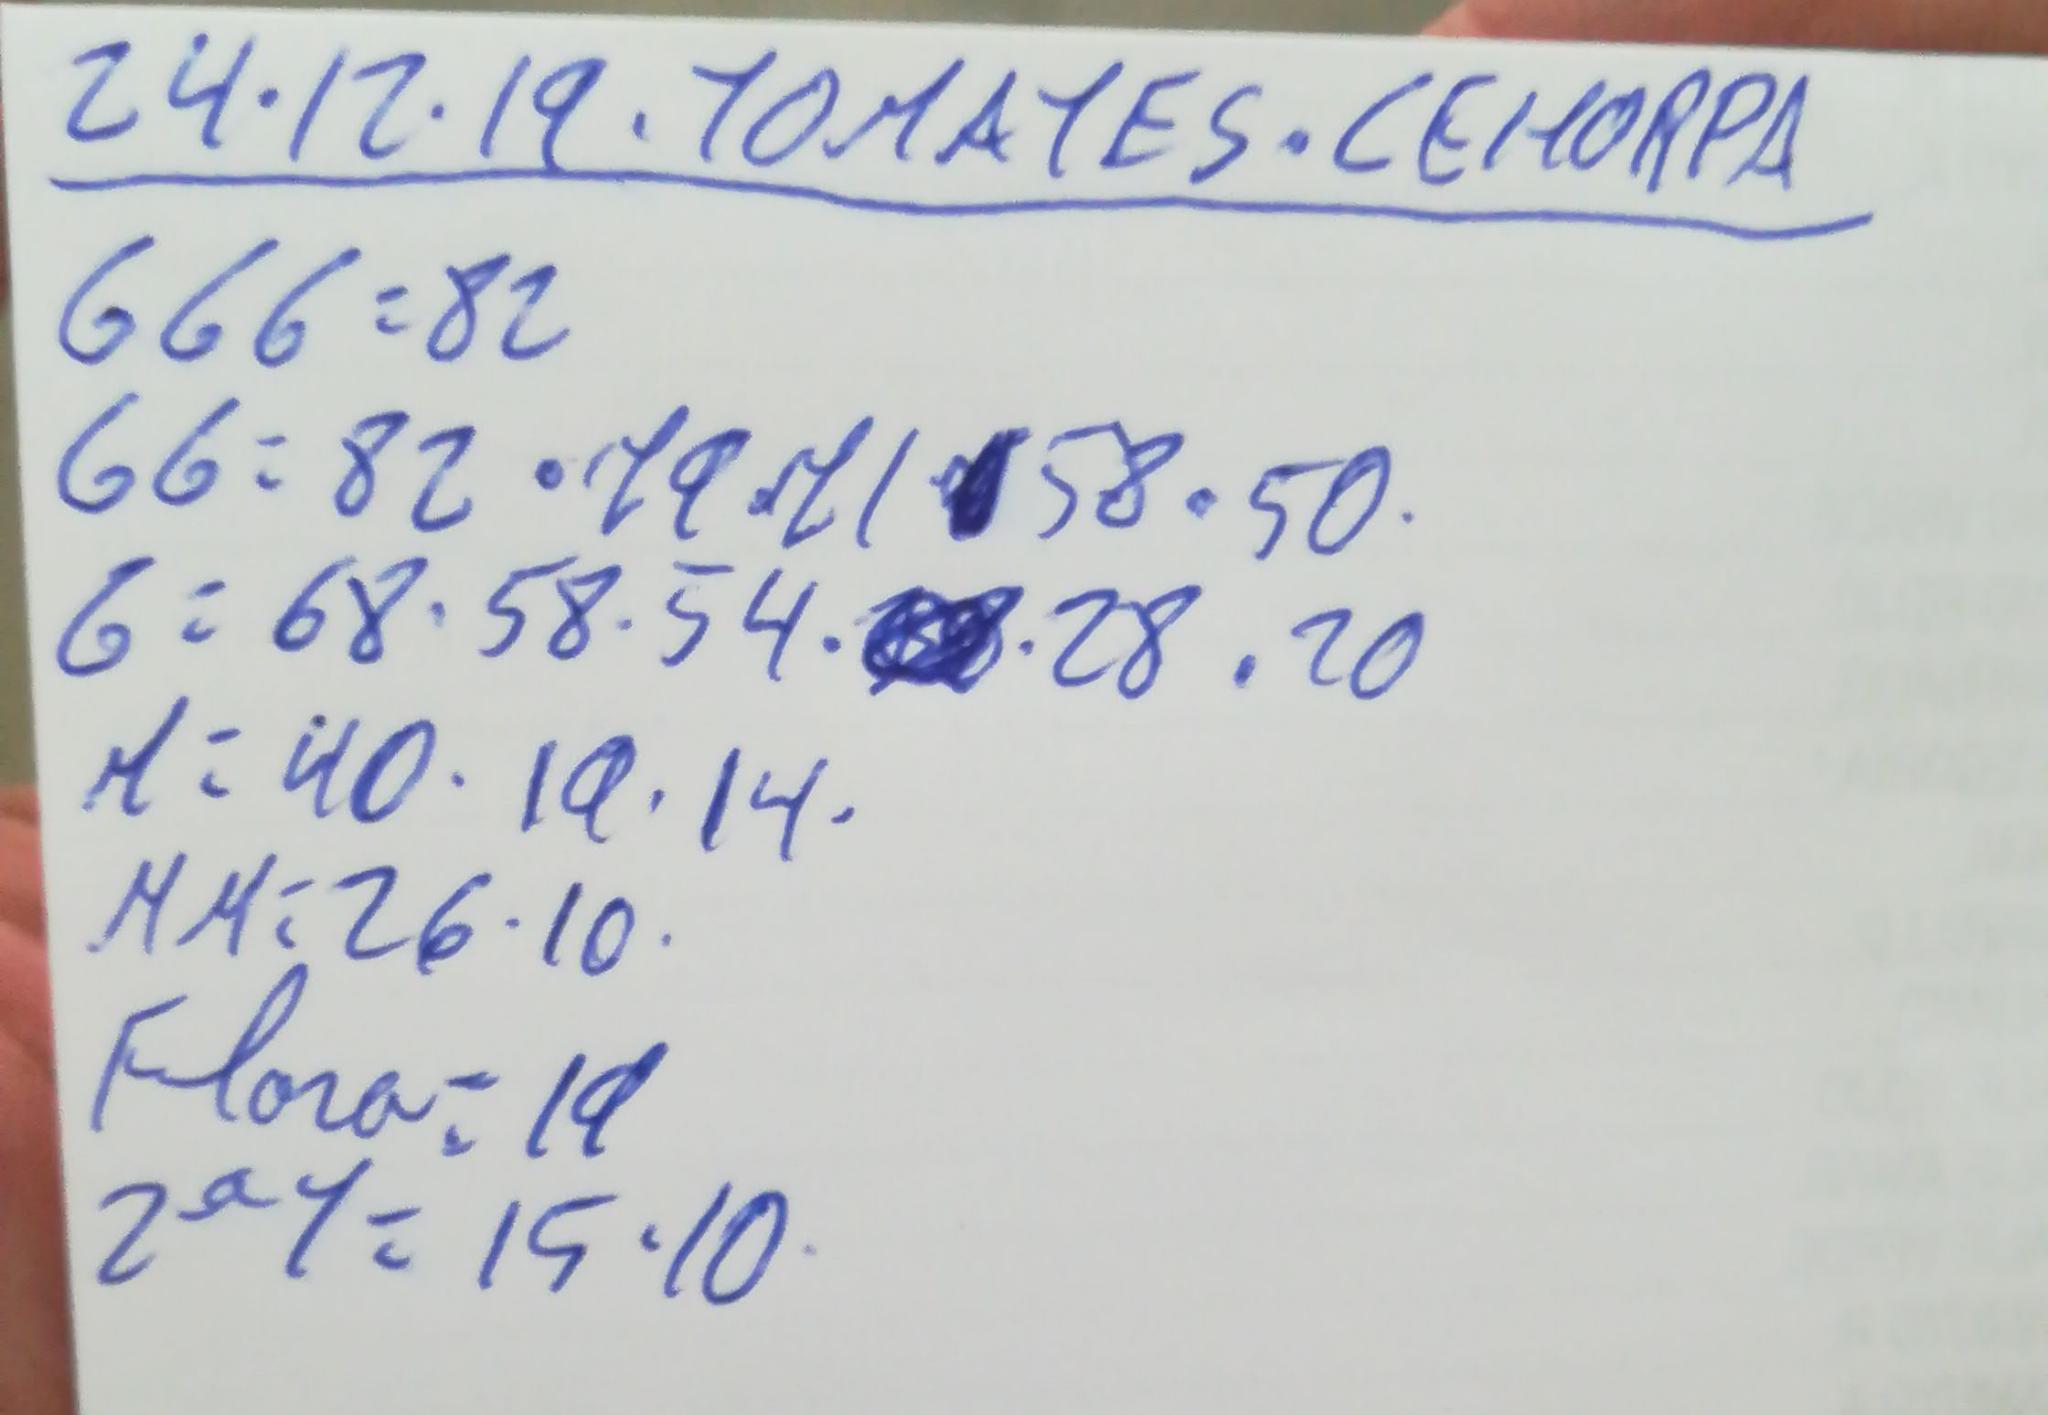 24.12.19. TOMATES. CEHORPA
GGG = 82
GG = 82 . 79 . 71 . 58 . 50.
G = 68 . 58 . 54 . 28 . 20
M = 40 . 19 . 14.
MM = 26 . 10.
Flora = 19
2ª Y = 15 . 10.